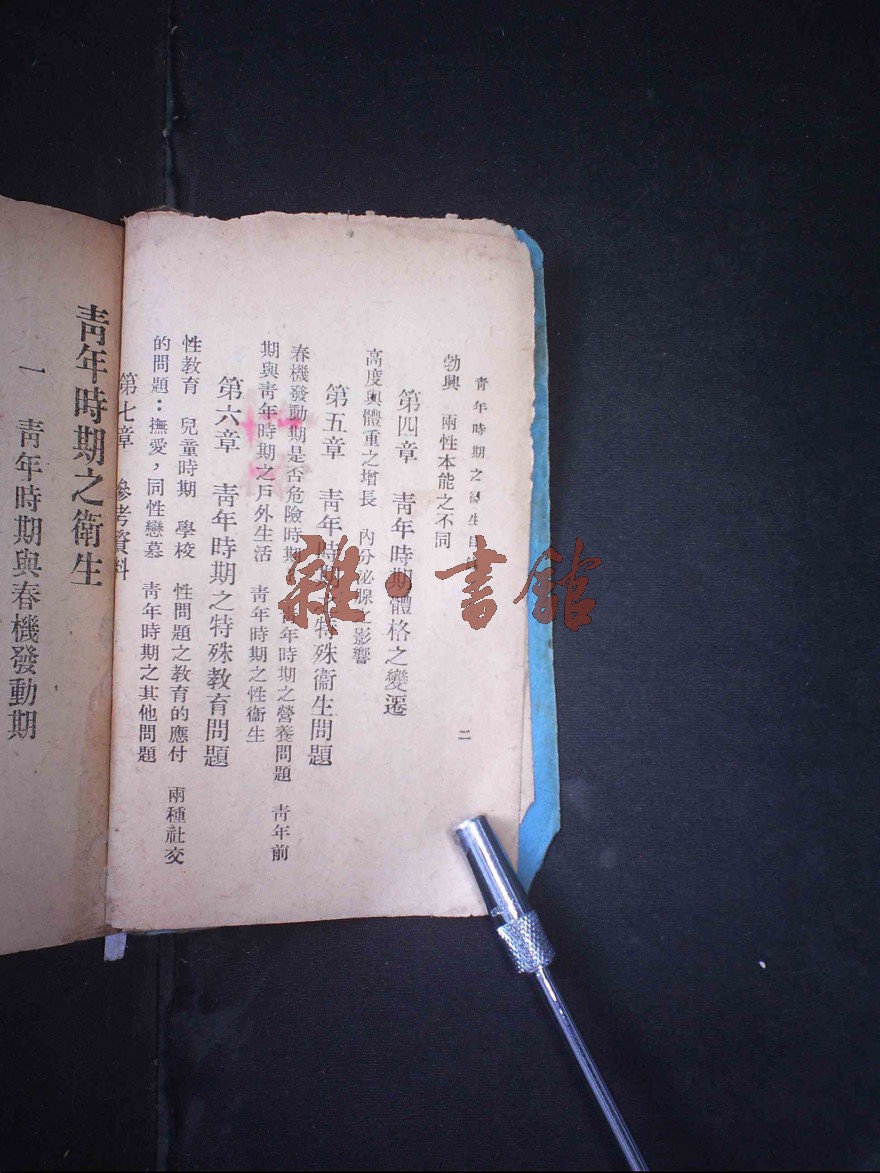 青年時期之衛生目次
二
勃興　兩性本能之不同
第四章　青年時期體格之變遷
高度與體重之增長　內分泌腺之影響
第五章　青年時期之特殊衞生問題
春機發動期是否危險時期　青年時期之營養問題　青年前
期與青年時期之戶外生活　青年時期之性衞生
第六章　青年時期之特殊教育問題
性教育　兒童時期　學校　性問題之教育的應付　兩種社交
的問題：撫愛，同性戀慕　青年時期之其他問題
第七章　參考資料
青年時期之衛生
一　青年時期與春機發動期
雜·書館